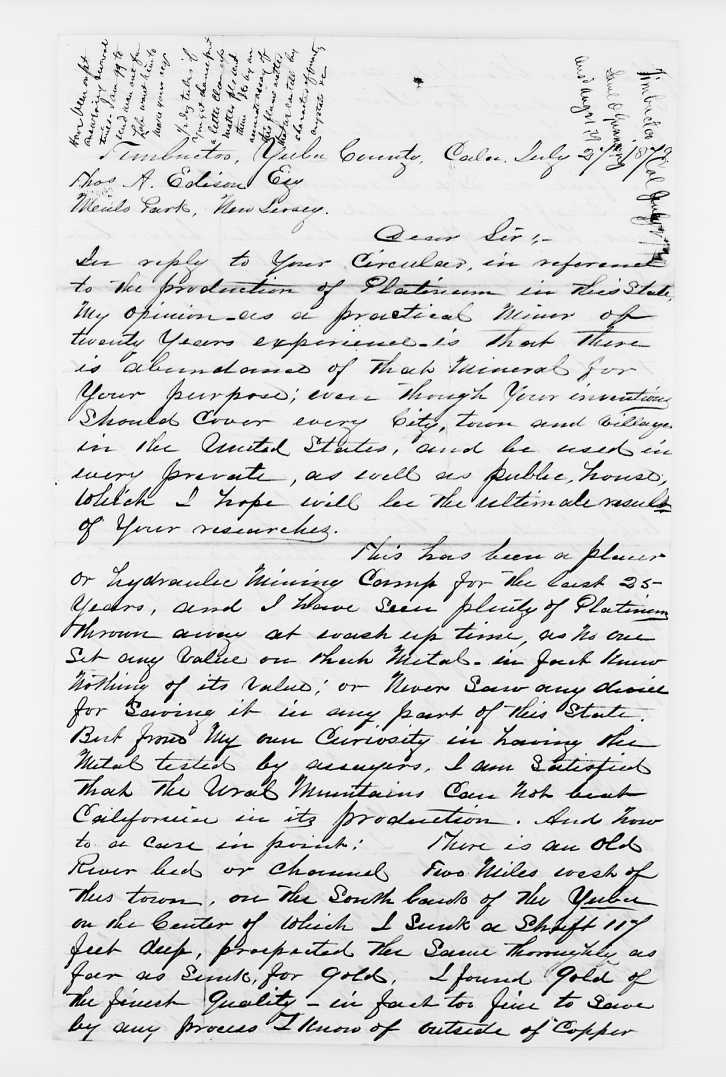 Have been exp
assaying several
Timbuctoo, Yuba County, Cala. July 27th 1879
Thos A. Edison Esq
Menlo Park, New Jersey.
Dear Sir:-
In reply to Your Circular, in reference
to the production of Platinum in this State,
My opinion as a practical Miner of
twenty Years experience is that there
is abundance of that Mineral for
Your purpose; even though Your inventions
Should Cover every City, town and Village
in the United States, and be used in
every private, as well as public, house,
Which I hope will be the ultimate result
of Your researches.
This has been a placer
or hydraulic Mining Camp for the last 25
Years, and I have Seen plenty of Platinum
thrown away at wash up time, as No one
Set any Value on that Metal - in fact Knew
Nothing of its Value; or Never Saw any device
for Saving it in any part of this State.
But from My own Curiosity in having the
Metal tested by assayers, I am Satisfied
that the Ural Mountains Can Not beat
California in its production. And Now
to a case in point: There is an Old
River bed or channel Two Miles west of
this town, on the South bank of the Yuba
on the Center of Which I Sunk a Shaft 117
feet deep, prospected the Same thoroughly as
far as Sunk, for Gold, I found Gold of
the finest Quality - in fact too fine to Save
by any process I Know of outside of Copper